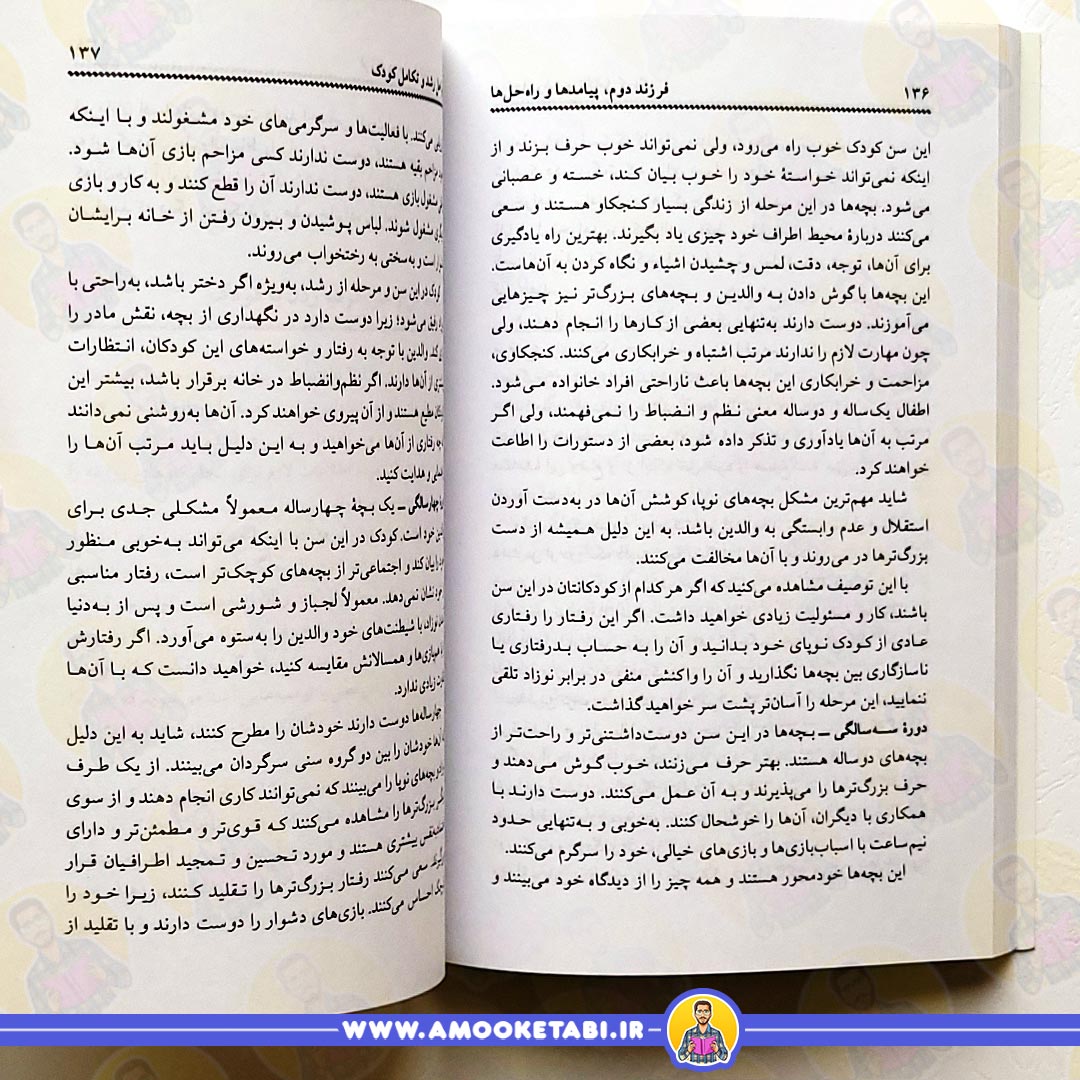 ۱۳۶
فرزند دوم، پیامدها و راه‌حل‌ها
این سن کودک خوب راه می‌رود، ولی نمی‌تواند خوب حرف بزند و از
اینکه نمی‌تواند خواستهٔ خود را خوب بیان کند، خسته و عصبانی
می‌شود. بچه‌ها در این مرحله از زندگی بسیار کنجکاو هستند و سعی
می‌کنند دربارهٔ محیط اطراف خود چیزی یاد بگیرند. بهترین راه یادگیری
برای آن‌ها، توجه، دقت، لمس و چشیدن اشیاء و نگاه کردن به آن‌هاست.
این بچه‌ها با گوش دادن به والدین و بچه‌های بزرگ‌تر نیز چیزهایی
می‌آموزند. دوست دارند به‌تنهایی بعضی از کارها را انجام دهند، ولی
چون مهارت لازم را ندارند مرتب اشتباه و خرابکاری می‌کنند. کنجکاوی،
مزاحمت و خرابکاری این بچه‌ها باعث ناراحتی افراد خانواده می‌شود.
اطفال یک‌ساله و دوساله معنی نظم و انضباط را نمی‌فهمند، ولی اگر
مرتب به آن‌ها یادآوری و تذکر داده شود، بعضی از دستورات را اطاعت
خواهند کرد.
شاید مهم‌ترین مشکل بچه‌های نوپا، کوشش آن‌ها در به‌دست آوردن
استقلال و عدم وابستگی به والدین باشد. به این دلیل همیشه از دست
بزرگ‌ترها در می‌روند و با آن‌ها مخالفت می‌کنند.
با این توصیف مشاهده می‌کنید که اگر هر کدام از کودکانتان در این سن
باشند، کار و مسئولیت زیادی خواهید داشت. اگر این رفتار را رفتاری
عادی از کودک نوپای خود بدانید و آن را به حساب بدرفتاری یا
ناسازگاری بین بچه‌ها نگذارید و آن را واکنشی منفی در برابر نوزاد تلقی
ننمایید، این مرحله را آسان‌تر پشت سر خواهید گذاشت.
دورهٔ سه‌سالگی ـ بچه‌ها در این سن دوست‌داشتنی‌تر و راحت‌تر از
بچه‌های دوساله هستند. بهتر حرف می‌زنند، خوب گوش می‌دهند و
حرف بزرگ‌ترها را می‌پذیرند و به آن عمل می‌کنند. دوست دارند با
همکاری با دیگران، آن‌ها را خوشحال کنند. به‌خوبی و به‌تنهایی حدود
نیم‌ساعت با اسباب‌بازی‌ها و بازی‌های خیالی، خود را سرگرم می‌کنند.
این بچه‌ها خودمحور هستند و همه چیز را از دیدگاه خود می‌بینند و
۱۳۷
رشد و تکامل کودک
می‌کنند. با فعالیت‌ها و سرگرمی‌های خود مشغولند و با اینکه
مزاحم بقیه هستند، دوست ندارند کسی مزاحم بازی آن‌ها شود.
مشغول بازی هستند، دوست ندارند آن را قطع کنند و به کار و بازی
مشغول شوند. لباس پوشیدن و بیرون رفتن از خانه برایشان
است و به‌سختی به رختخواب می‌روند.
کودک در این سن و مرحله از رشد، به‌ویژه اگر دختر باشد، به‌راحتی با
رفیق می‌شود؛ زیرا دوست دارد در نگهداری از بچه، نقش مادر را
کند. والدین با توجه به رفتار و خواسته‌های این کودکان، انتظارات
از آن‌ها دارند. اگر نظم‌وانضباط در خانه برقرار باشد، بیشتر این
مطیع هستند و از آن پیروی خواهند کرد. آن‌ها به‌روشنی نمی‌دانند
چه رفتاری از آن‌ها می‌خواهید و به این دلیل باید مرتب آن‌ها را
و هدایت کنید.
چهارسالگی ـ یک بچهٔ چهارساله معمولاً مشکلی جدی برای
خود است. کودک در این سن با اینکه می‌تواند به‌خوبی منظور
بیان کند و اجتماعی‌تر از بچه‌های کوچک‌تر است، رفتار مناسبی
خود نشان نمی‌دهد. معمولاً لجباز و شورشی است و پس از به‌دنیا
نوزاد، با شیطنت‌های خود والدین را به‌ستوه می‌آورد. اگر رفتارش
هم‌بازی‌ها و همسالانش مقایسه کنید، خواهید دانست که با آن‌ها
زیادی ندارد.
چهارساله‌ها دوست دارند خودشان را مطرح کنند، شاید به این دلیل
خودشان را بین دو گروه سنی سرگردان می‌بینند. از یک طرف
بچه‌های نوپا را می‌بینند که نمی‌توانند کاری انجام دهند و از سوی
بزرگ‌ترها را مشاهده می‌کنند که قوی‌تر و مطمئن‌تر و دارای
بیشتری هستند و مورد تحسین و تمجید اطرافیان قرار
سعی می‌کنند رفتار بزرگ‌ترها را تقلید کنند، زیرا خود را
احساس می‌کنند. بازی‌های دشوار را دوست دارند و با تقلید از
WWW.AMOOKETABI.IR